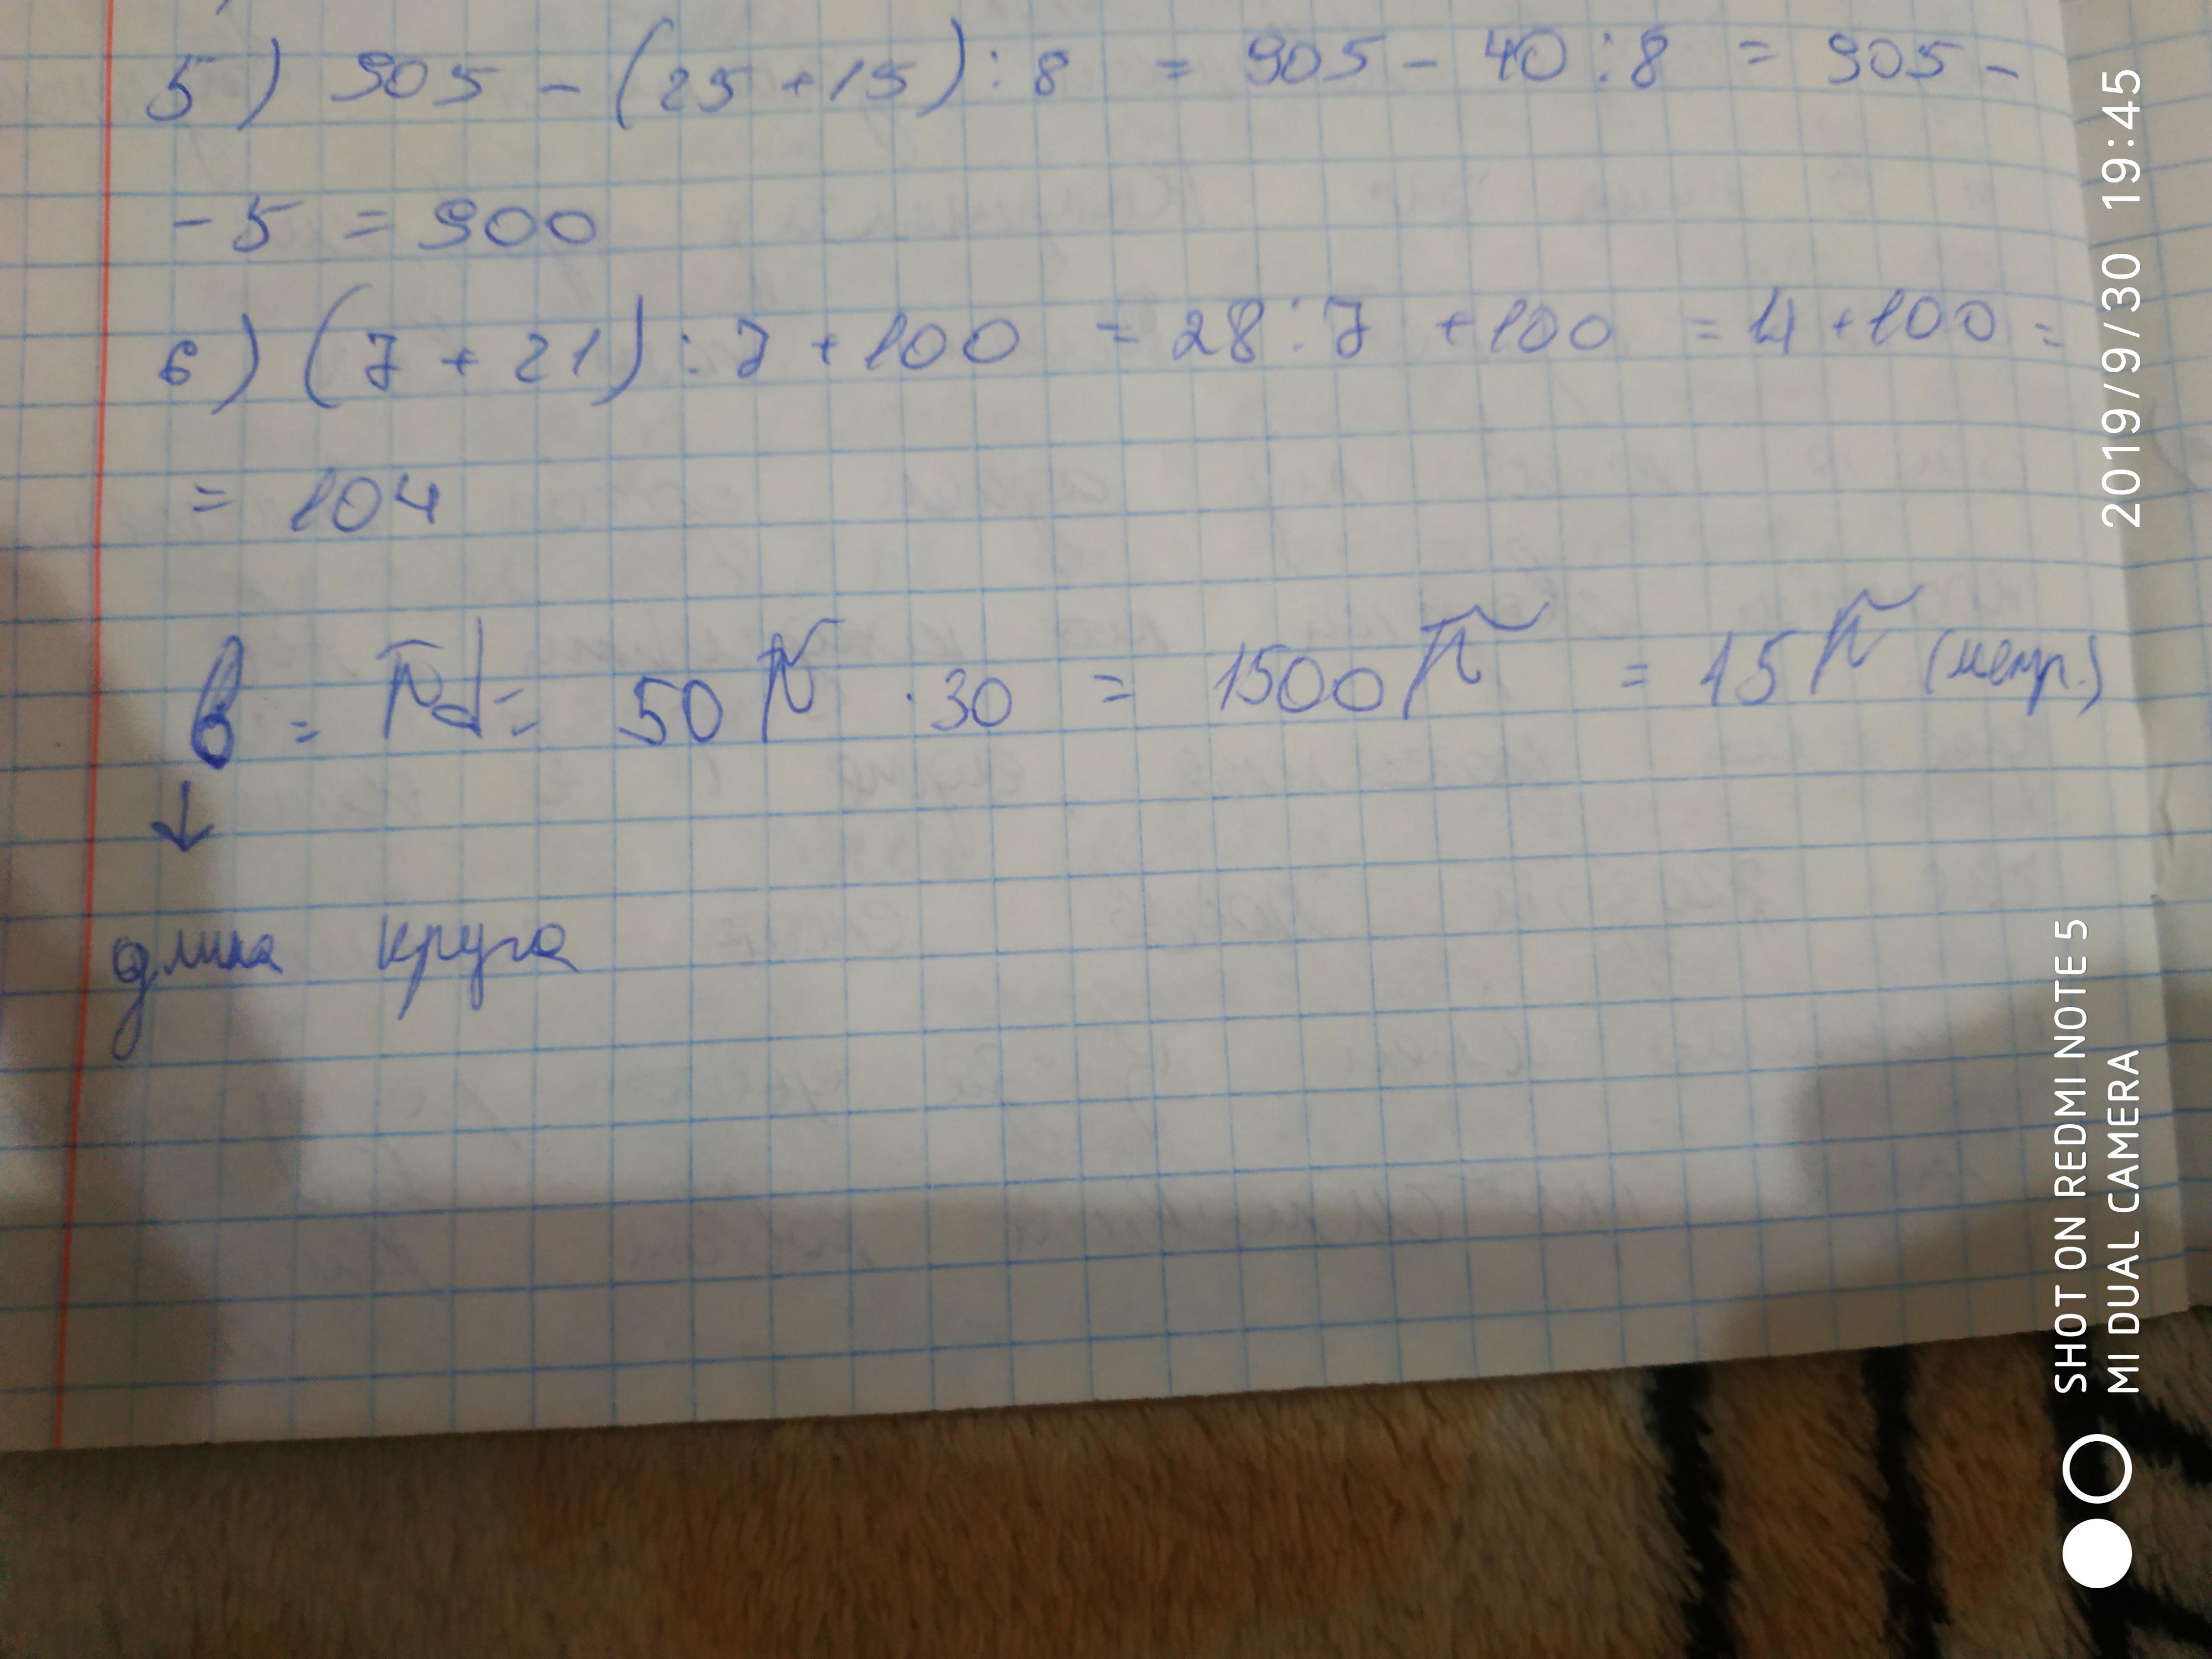 5) 905 - (25 + 15) : 8 = 905 - 40 : 8 = 905 -
- 5 = 900
6) (7 + 21) : 7 + 100 = 28 : 7 + 100 = 4 + 100 =
= 104
l = πd = 50π · 30 = 1500π = 15π (метр.)
↓
длина круга
2019/9/30 19:45
SHOT ON REDMI NOTE 5
MI DUAL CAMERA